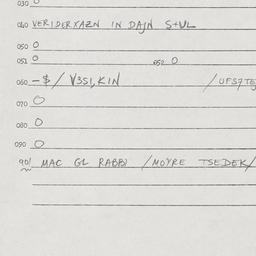 030 0
040 VERIDERXAZN IN DAJN S+UL
050 0
051 0 052 0
060 -$/ V3SI,KIN /UFS7TE
070 0
080 0
090 0
901 MAC GL RABBJ /MOYRE TSEDEK/